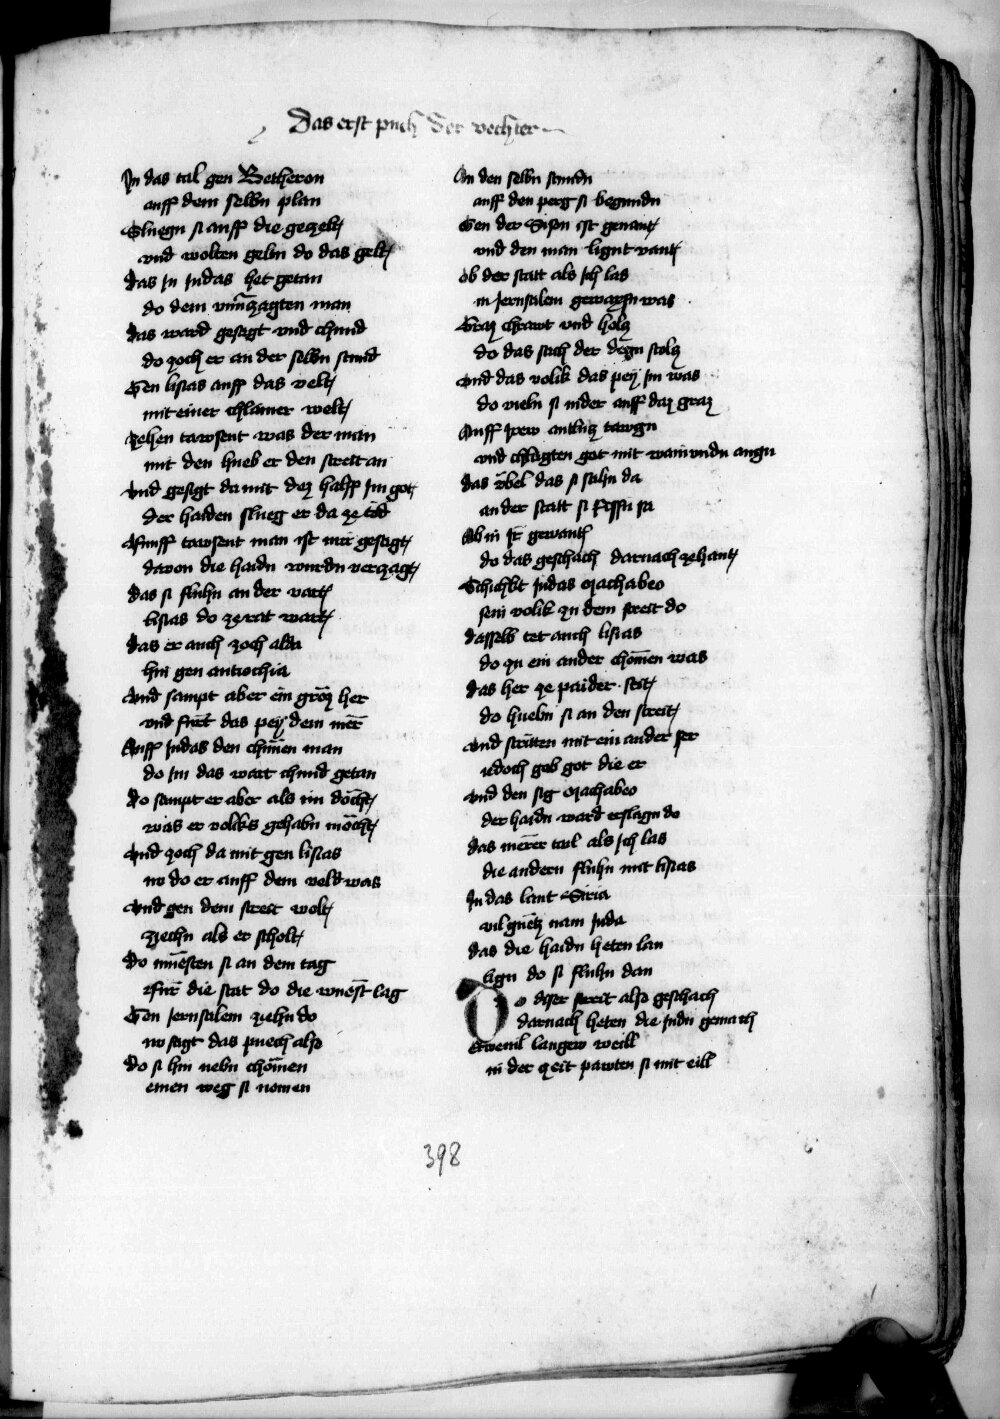 Das erst puch der vechter
In das tal gen Betheron
auff dem selbn plan
Sluegn si auff die geczelt
vnd wolten geltn do das gelt
das In Iudas het getan
do dem vnuerzagten man
das ward gesagt vnd chund
do zoch er an der selbn stund
Gen lisias auff das velt
mit einer chlainer welt
zehen tawsent was der man
mit den hueb er den streit an
vnd gesigt da mit dez halff Im got
der haiden slueg er da ze tod
ffunff tawsent man ist mir gesagt
davon die haidn wurdn verczagt
das si fluhn an der vart
lisias do ze rat wart
das er auch zoch alda
hin gen antiochia
vnd sampt aber ein groz her
vnd furt das pey dem mer
Auff Iudas den chunen man
do Im das wart chund getan
do sampt er aber als im docht
was er volcks gehabn mocht
vnd zoch da mit gen lisias
no do er auff dem veld was
vnd gen dem streit wolt
ziechn als er scholt
do muesten si an dem tag
ffur die stat do die wuest lag
Gen Ierusalem ziehn do
no sagt das puech also
do si hin nebn chomen
einen weg si nomen
An den selbn stundn
auff den perg si begundn
Gen der Sison ist genant
vnd den man lignt vant
ob der statt als Ich las
in Ierusalem gewaxsn was
Graz chrawt vnd holz
do das sach der degn stolz
vnd das volik das pey Im was
do vieln si nider auff daz graz
Auff Irew antlutz tawgn
vnd chlagten got mit wainundn augn
das vbel das si sahn da
an der statt si rissn sa
Ab in Ir gewant
do das geschach darnach zehant
Schichkt Iudas Machabeo
sein volik zu dem streit do
dasselb tet auch lisias
do zu ein ander chomen was
das her ze paider seit
do huebn si an den streit
vnd stritten mit ein ander ser
idoch gab got die er
vnd den sig Machabeo
der haidn ward erslagn do
das merer tail als Ich las
die andern fluhn mit lisias
In das lant Siria
vil guetz nam Iuda
das die haidn heten lan
lign do si fluhn dan
Do diser streit also geschach
darnach heten die Iudn gemach
Etwenil langew weill
in der zeit pawten si mit eill
398